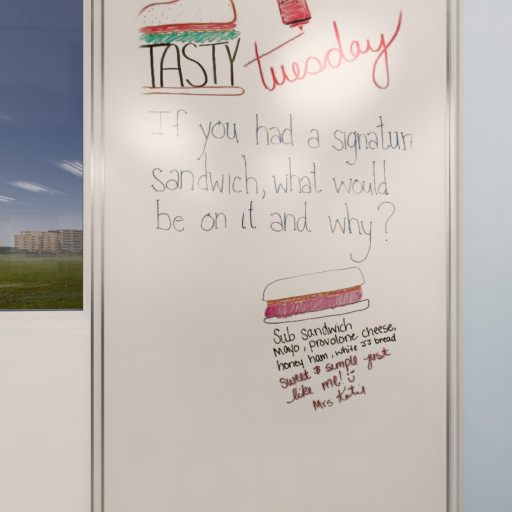 TASTY tuesday
If you had a signatur
sandwich, what would
be on it and why?
Sub sandwich
Mayo, provolone cheese,
honey ham, white JJ bread
sweet & simple just
like me!
Mrs Katie